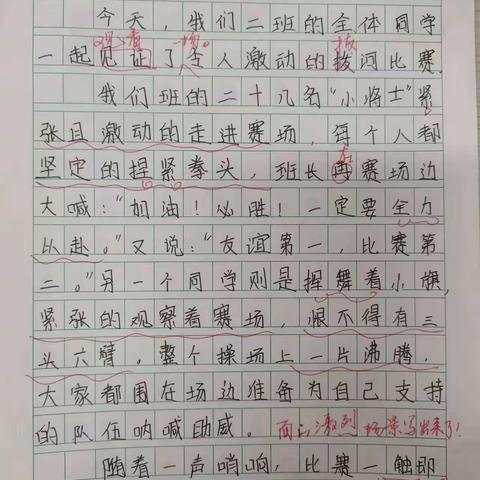 今天，我们二班的全体同学
观看 一场。 拔
一起见证了令人激动的拨河比赛。
我们班的二十几名“小将士”紧
张且激动的走进赛场，每个人都
坚定的捏紧拳头，班长再赛场边
在
大喊：“加油！必胜！一定要全力
以赴。”又说：“友谊第一，比赛第
二。”另一个同学则是挥舞着小旗，
紧张的观察着赛场，恨不得有三
头六臂，整个操场上一片沸腾，
大家都围在场边准备为自己支持
的队伍呐喊助威。 激烈 场景写出来了！
随着一声哨响，比赛一触即